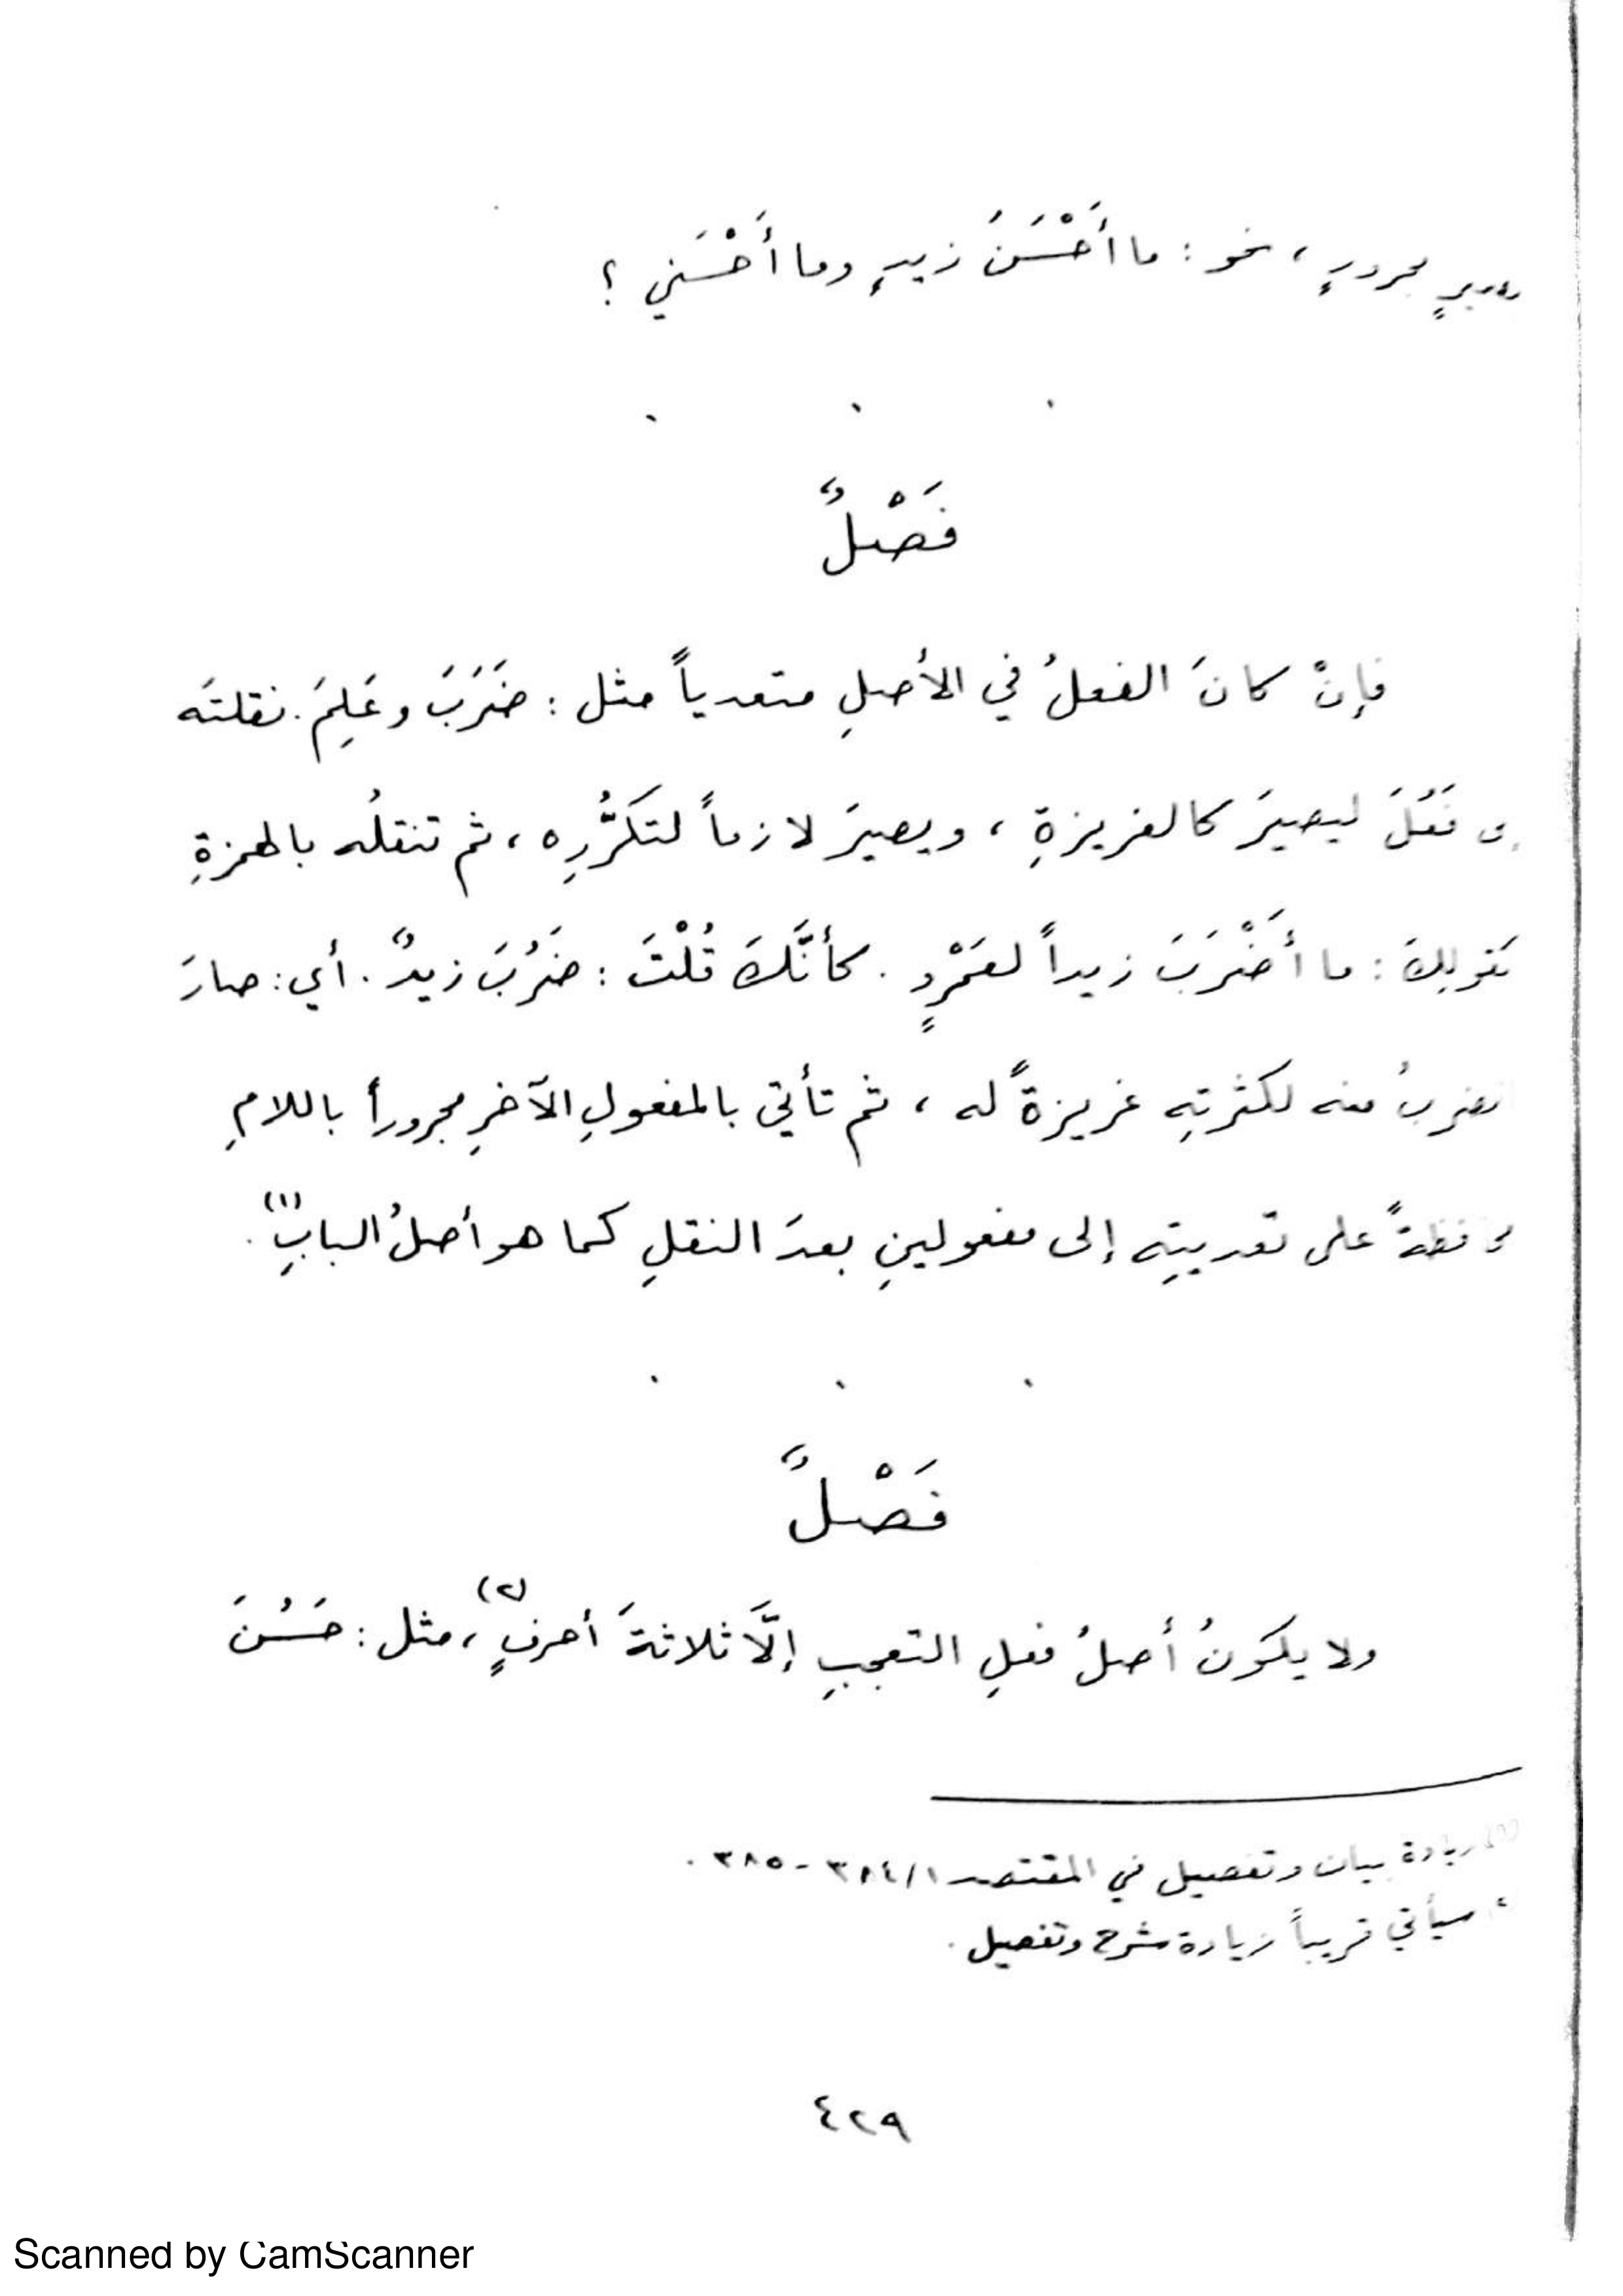 مجرورٍ ، نحو : ما أَحْسَنُ زيدٍ وما أَحْسَني ؟
فَصْلٌ
فإنْ كانَ الفعلُ في الأصلِ متعدياً مثل : ضَرَبَ وعَلِمَ . نقلتَه
فَعُلَ ليصيرَ كالغريزةِ ، ويصيرَ لازماً لتكَرُّرِه ، ثم تنقلُه بالهمزةِ
كقولِكَ : ما أَضْرَبَ زيداً لعَمْرٍو . كأنَّكَ قُلْتَ : ضَرُبَ زيدٌ . أي : صارَ
الضربُ منه لكثرتِه غريزةً له ، ثم تأتي بالمفعولِ الآخرِ مجروراً باللامِ
محافظةً على تعديتِه إلى مفعولينِ بعدَ النقلِ كما هو أصلُ البابِ (١) .
فَصْلٌ
ولا يكونُ أصلُ فعلِ التعجبِ إلَّا ثلاثةَ أحرفٍ (٢) ، مثل : حَسُنَ
(١) زيادة بيان وتفصيل في المقتصد ٣٨٤/١ - ٣٨٥ .
سيأتي قريباً زيادة شرح وتفصيل .
٤٢٩
Scanned by CamScanner